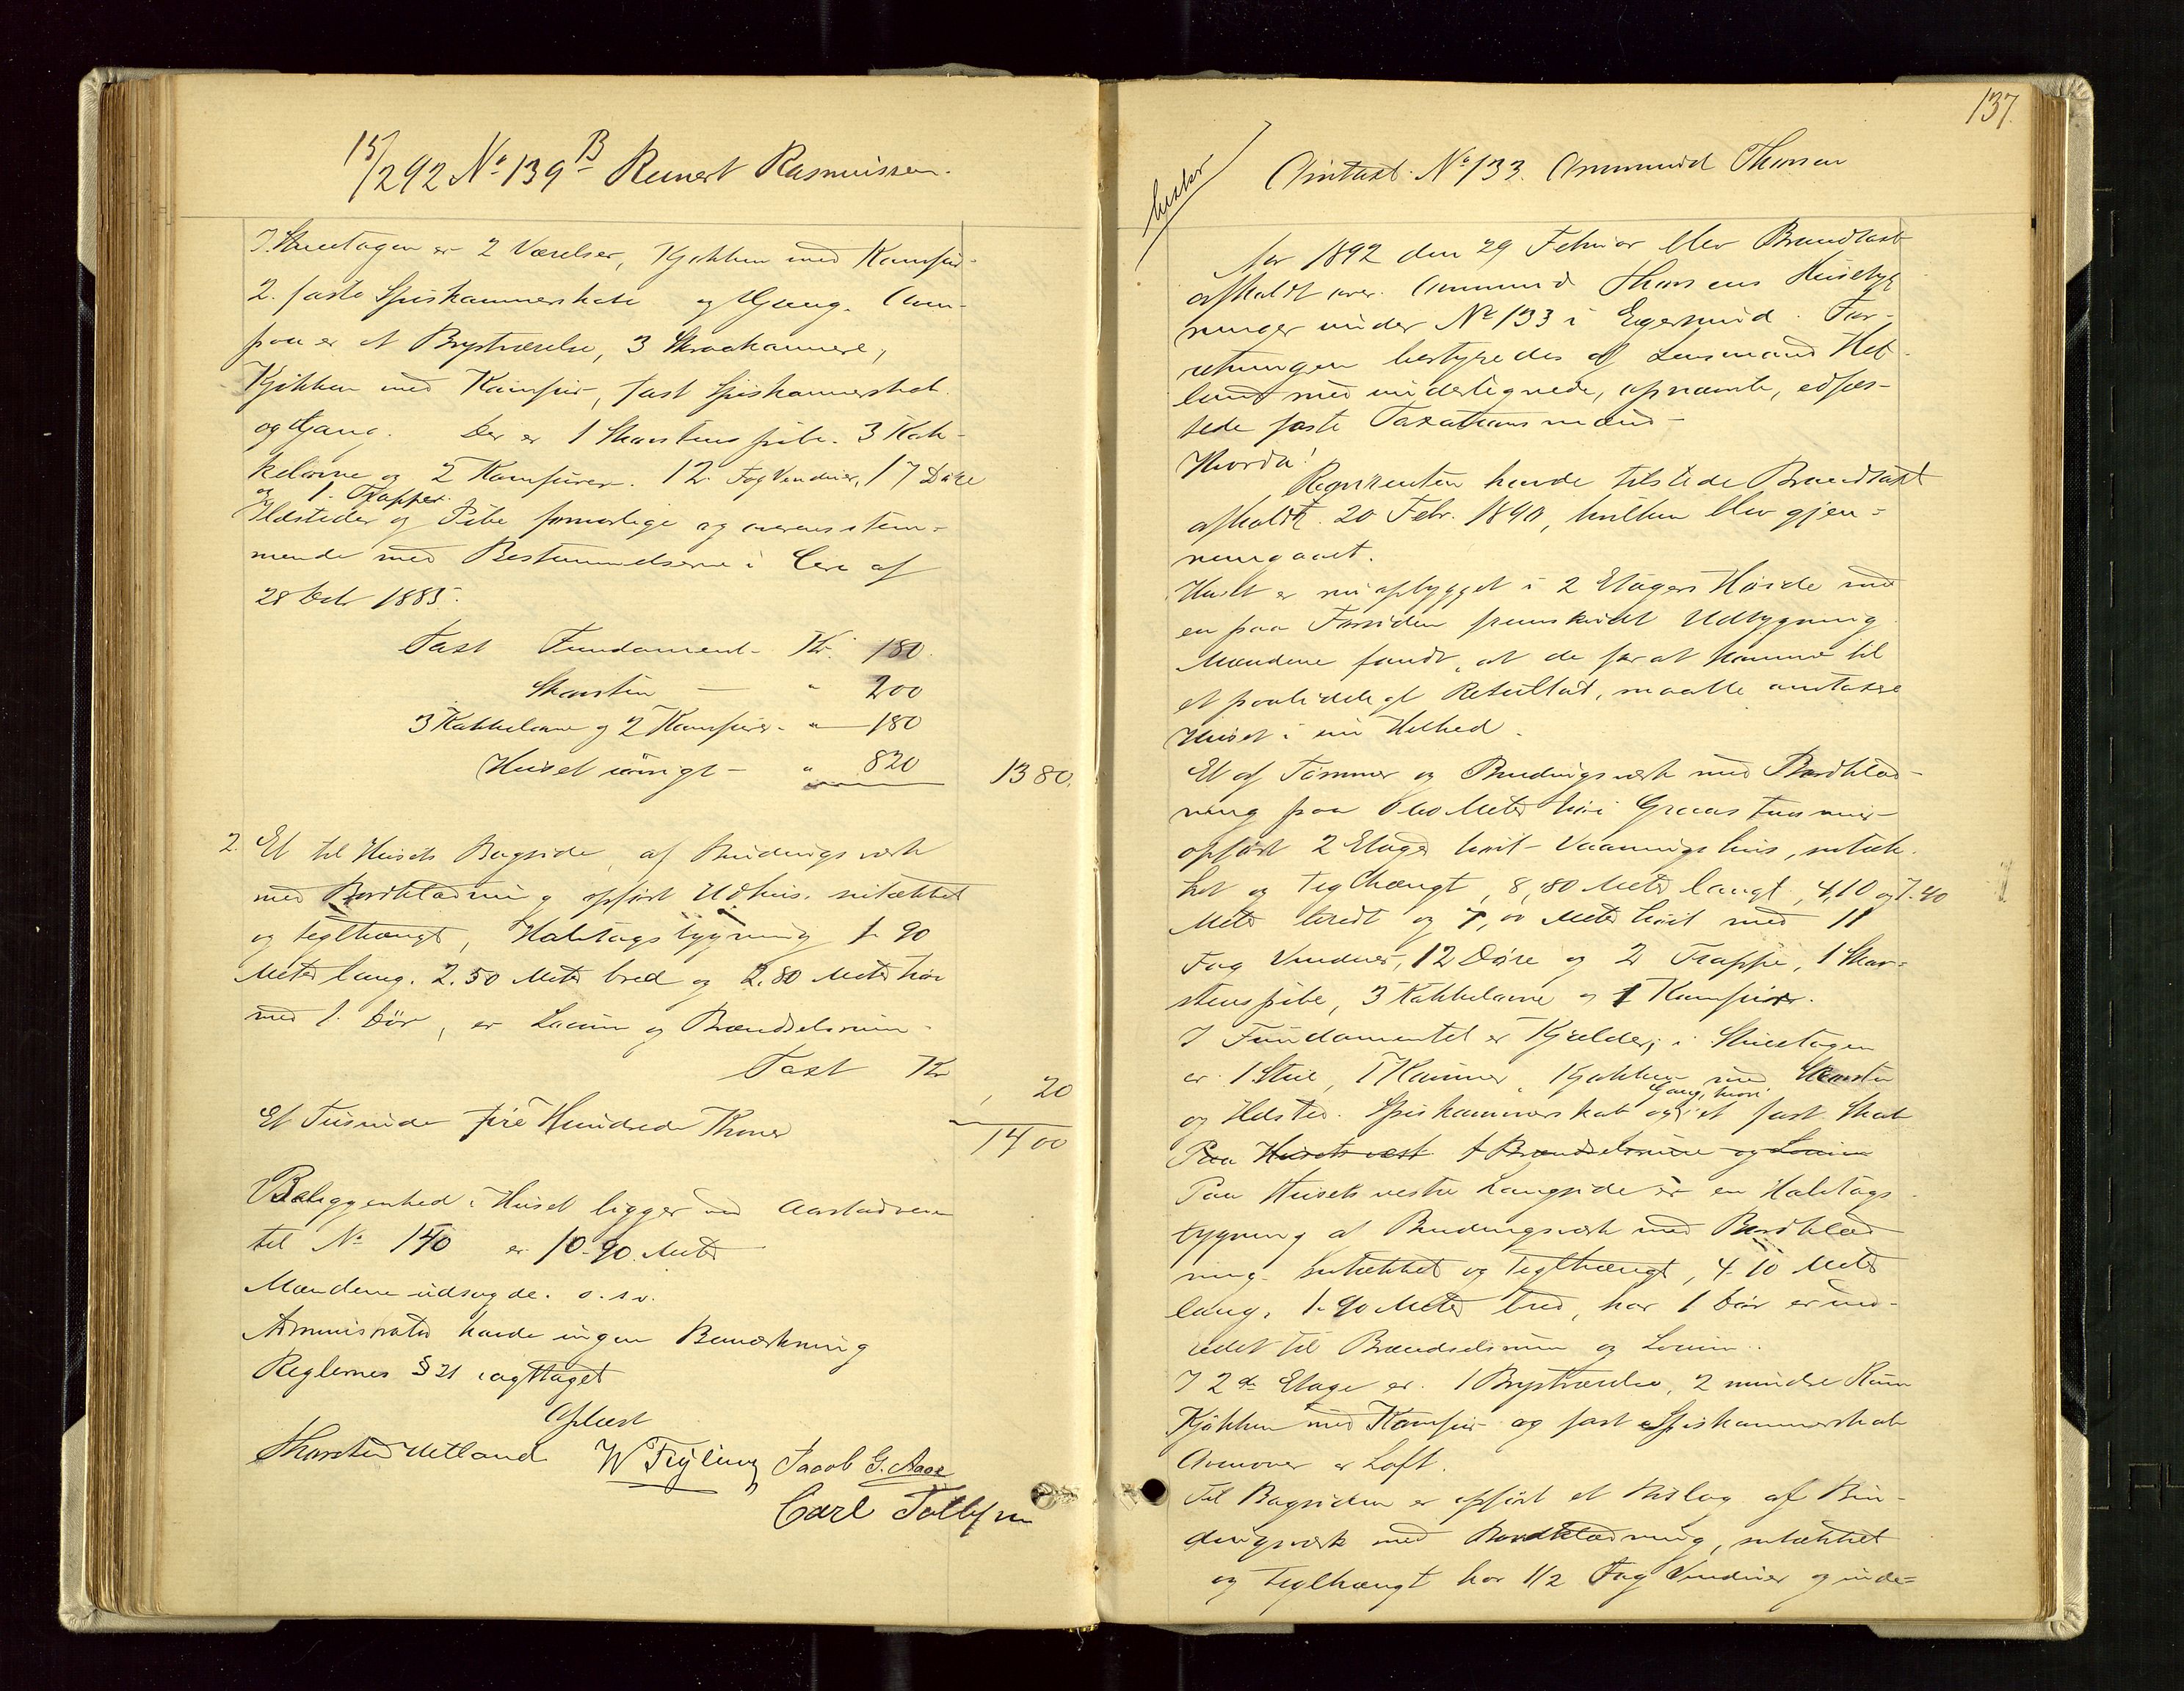 15/2 92 No 139 B Reinert Rasmussen.
I Stueetagen er 2 Værelser, Kjøkken med Komfur
2 faste Spiskammerskabe og Gang. Oven-
paa er et Brystværelse, 3 Skraakamere,
Kjøkken med Komfur, fast Spiskammerskab
og Gang. Der er 1 Skorstenspibe. 3 Kak-
kelovne og 2 Komfurer. 12 Fag Vinduer, 17 Døre
og 1 Trapper.
Ildsteder og Pibe forsvarlige og overensstem-
mende med Bestemmelserne i Circ af
28 Octr 1885.
Taxt Fundament Kr. 180.
Skorsten — " 200
3 Kakkelovne og 2 Komfurer " 180
Huset iøvrigt — " 820 1380.
2. Et til Husets Bagside af Bindingsværk
med Bordklædning opført Udhus. nitækket
og teglhængt, Halvtagsbygning 1.90
Meter lang. 2.50 Meter bred og 2.80 Meter høi
med 1 Dør, er Locum og Brændselsrum.
Taxt Kr 20
Et Tusinde fire Hundrede Kroner 1400
Beliggenhed: Huset ligger ved Aarstadveien
til No 140 er 10.90 Meter
Mændene udsagde. o.s.v.
Administrator havde ingen Bemærkning
Reglernes § 21 iagttaget
Oplæst
Thorsten Hetland W Feyling Jacob G. Aase
Carl Tollefsen
137.
Omtaxt. No 133. Ommund Thorsen
Aar 1892 den 29 Februar blev Brandtaxt
afholdt over Ommund Thorsens Husebyg
ninger under No 133 i Egersund. For-
retningen bestyredes af Lensmand Het-
land med undertegnede, opnævnte, edfæs-
tede faste Taxationsmænd
Hvorda!
Rekvirenten havde tilstede Brandtaxt
afholdt 20 Febr. 1890, hvilken blev gjen-
nemgaaet.
Huset er nu opbygget i 2 Etagers Høide med
en paa Forsiden fremskudt Udbygning
Mændene fandt, at de for at komme til
et paalideligt Resultat, maatte omtaxere
Huset i sin Helhed.
Et af Tømmer og Bindingsværk med Bordklæd-
ning paa 0.60 Meter høi Graastensmur
opført 2 Etager høit Vaaningshus, nitæk-
ket og teglhængt, 8,80 Meter langt, 4,10 og 7.40
Meter bredt og 7,00 Meter høit med 11
Fag Vinduer, 12 Døre og 2 Trapper, 1 Skor-
stenspibe, 3 Kakkelovne og 1 Komfur.
I Fundamentet er Kjælder; i Stueetagen
er 1 Stue, 1 Kammer, Kjøkken med Skorsten
og Ildsted. Spiskammerskab og Gang, hvori et fast Skab
Paa Husets vest 1 Brændselsrum og Locum
Paa Husets vestre Langside er en Halvtags
bygning af Bindingsværk med Bordklæd
ning. nitækket og teglhængt, 4.10 Meter
lang, 1.90 Meter bred, har 1 Dør er ind-
redet til Brændselsrum og Locum.
I 2de Etage er 1 Brystværelse, 2 mindre Rum
Kjøkken med Komfur og fast Spiskammerskab
Ovenover er Loft.
Til Bagsiden er opført et Bislag af Bin-
dingsværk med Bordklædning, nitækket
og teglhængt har 1/2 Fag Vinduer og inde-